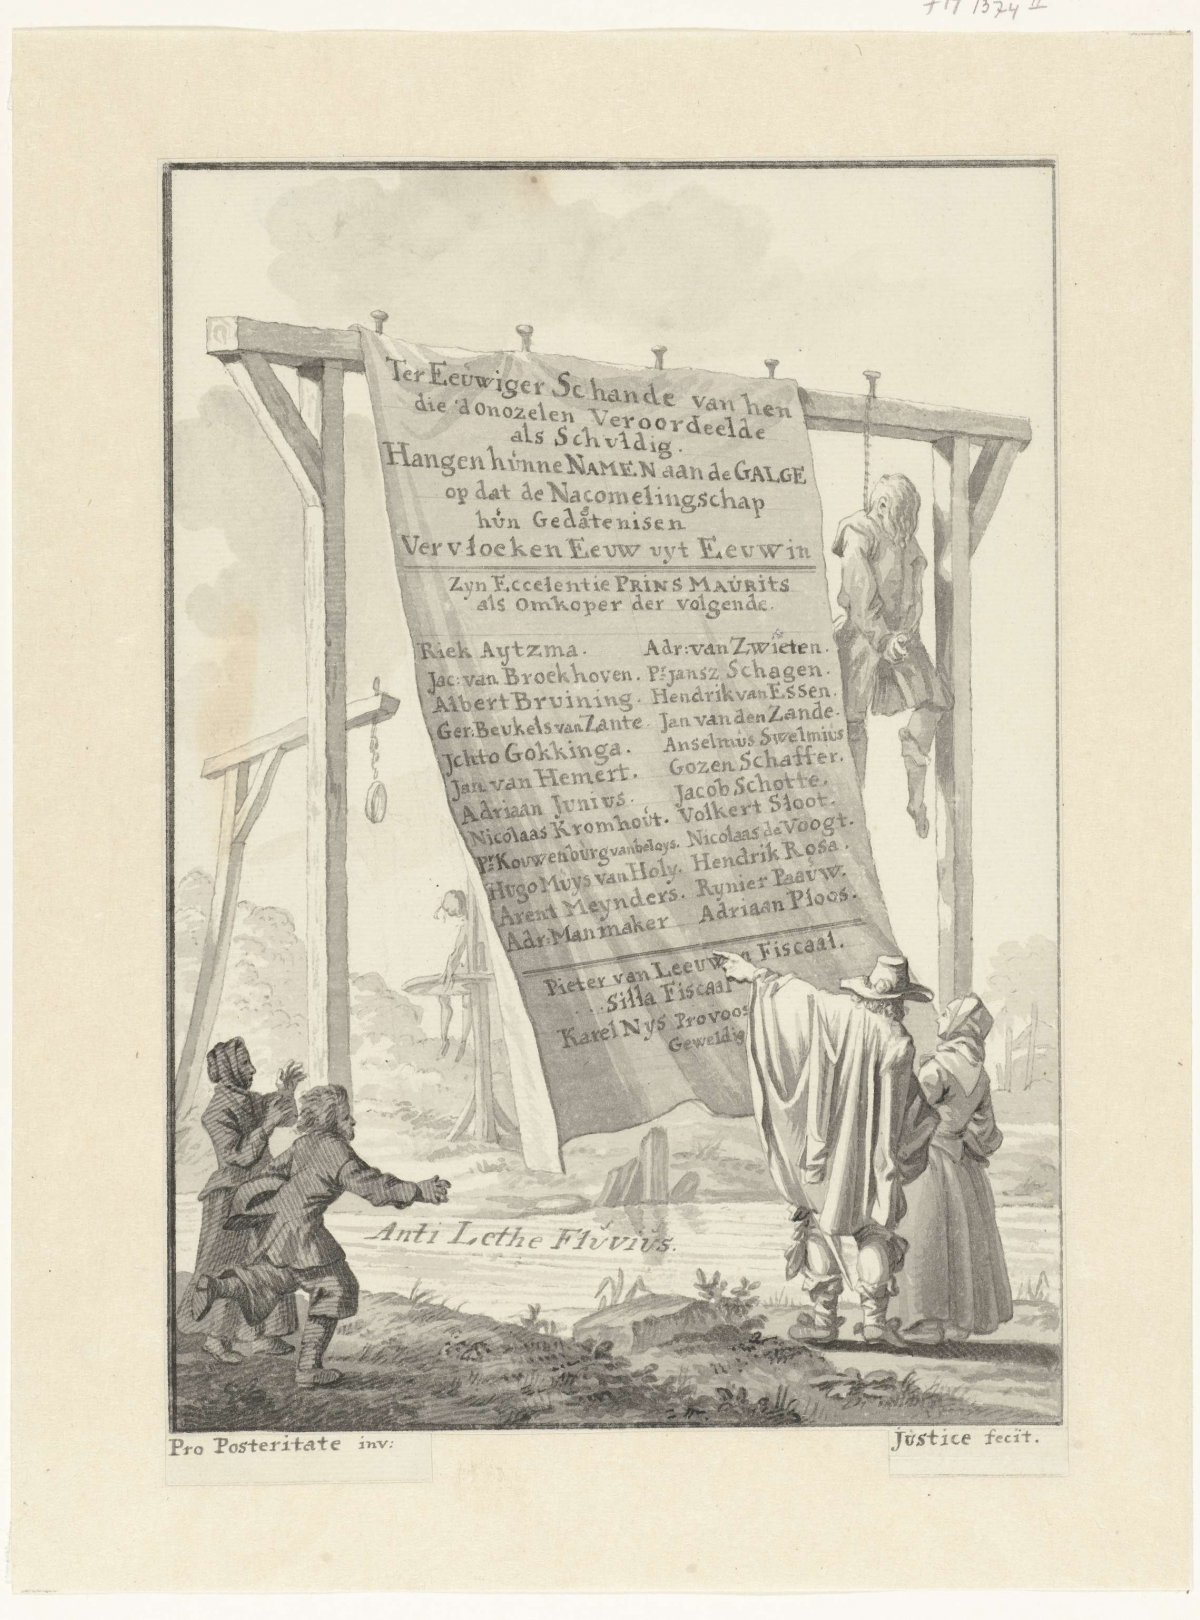 FM 1374 II
Ter Eeuwiger Schande van hen
die 'd onozelen Veroordeelde
als Schuldig.
Hangen hunne NAMEN aan de GALGE
op dat de Nacomelingschap
hun Gedagtenisen
Vervloecken Eeuw uyt Eeuw in
Zyn Eccelentie PRINS MAURITS
als Omkoper der volgende.
Riek Aytzma. Adr: van Zwieten.
Jac: van Broekhoven. Pr. jansz Schagen.
Albert Bruining. Hendrik van Essen.
Ger. Beukels van Zante. Jan van den Zande.
Jchto Gokkinga. Anselmus Swelmius
Jan van Hemert. Gozen Schaffer.
Adriaan Junius. Jacob Schotte.
Nicolaas Kromhout. Volkert Sloot.
Pr. Kouwenburg van beloys. Nicolaas de Voogt.
Hugo Muys van Holy. Hendrik Rosa.
Arent Meynders. Rynier Paauw.
Adr: Manmaker Adriaan Ploos.
Pieter van Leeuwen Fiscaal.
Silla Fiscaal
Karel Nys Provoos
Geweldig
Anti Lethe Fluvius.
Pro Posteritate inv:
Justice fecit.